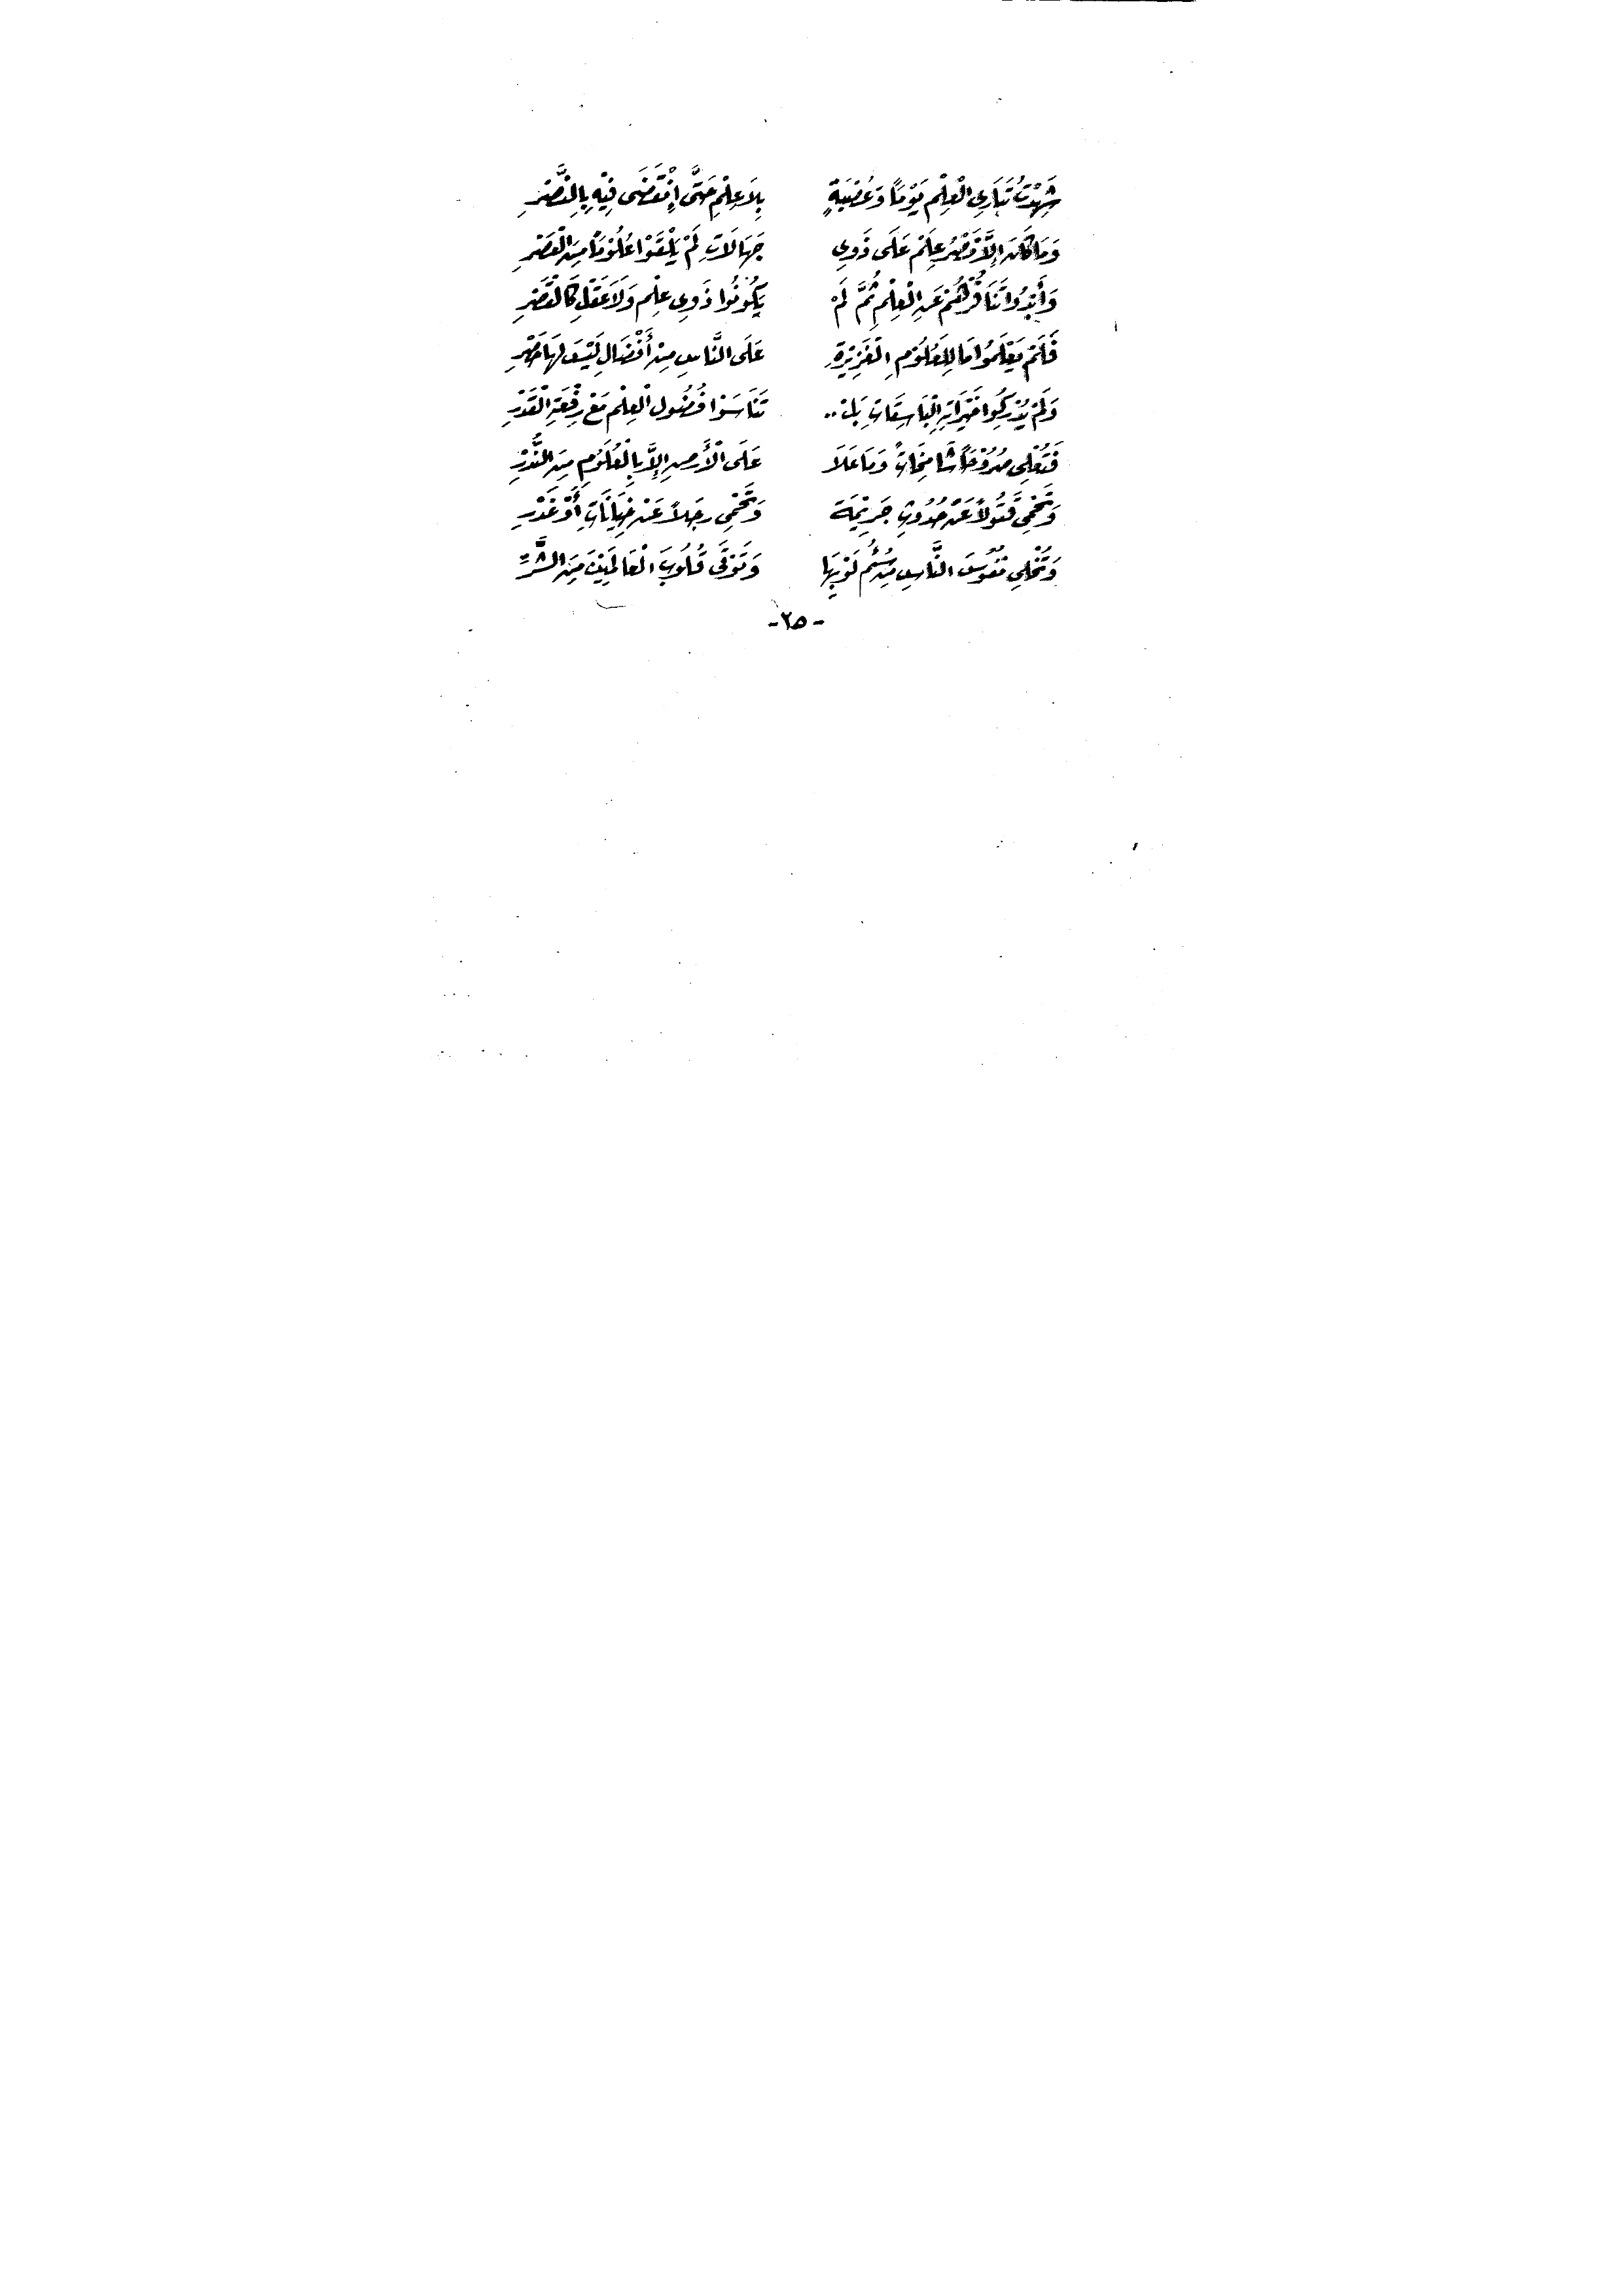 شَهِدْتُ تَبَارِي الْعِلْمِ يَوْمًا وَعُصْبَةٍ بِلَا عِلْمٍ حَتَّى إِنْقَضَى فِيْهِ بِالنَّصْرِ
وَمَا كَانَ إِلَّا نَصْرُ عِلْمٍ عَلَى ذَوِي جَهَالَاتِ لَمْ يَلْقَوْا عُلُوْمًا مِنَ الْعَصْرِ
وَأَبْدُوا تَنَافُرَهُمْ عَنِ الْعِلْمِ ثُمَّ لَمْ يَكُوْنُوا ذَوِي عِلْمٍ وَلَا عَقْلٍ كَالْقَصْرِ
فَلَمْ يَعْلَمُوا مَا لِلْعُلُوْمِ الْغَزِيْرَةِ عَلَى النَّاسِ مِنْ أَفْضَالِ لَيْسَ لَهَا حَصْرِ
وَلَمْ يُدْرِكُوا خَيْرَاتِهِ الْبَاسِقَاتِ بَلْ .. تَنَاسَوْا فُضُولَ الْعِلْمِ مَعْ رِفْعَةِ الْقَدْرِ
فَتُعْلِي صُرُوْحًا شَامِخَاتً وَمَا عَلَا عَلَى الْأَرْضِ إِلَّا بِالْعُلُوْمِ مِنَ النُّدْرِ
وَتَحْمِي قَتُولًا عَنْ حُدُوْثِ جَرِيْمَة وَتَحْمِي رَجُلًا عَنْ خِيَانَاتٍ أَوْ غَدْرِ
وَتُخْلِي نُفُوْسَ النَّاسِ مِنْ سُمِّ لَوْبِهَا وَتَوْقَى قُلُوْبَ الْعَالَمِيْنَ مِنَ الشَّرِّ
-٢٥-